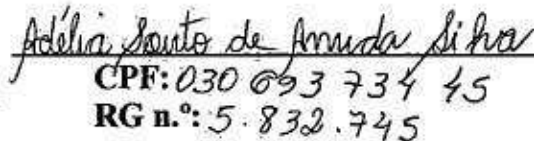 Adélia Souto de Arruda Silva
CPF: 030 693 734 45
RG n.º: 5.832.745